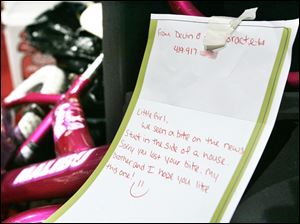 From Devin &
419-917
Little Girl,
We seen a bike on the news
stuct in the side of a house.
Sorry you lost your bike, my
brother and I hope you like
this one!